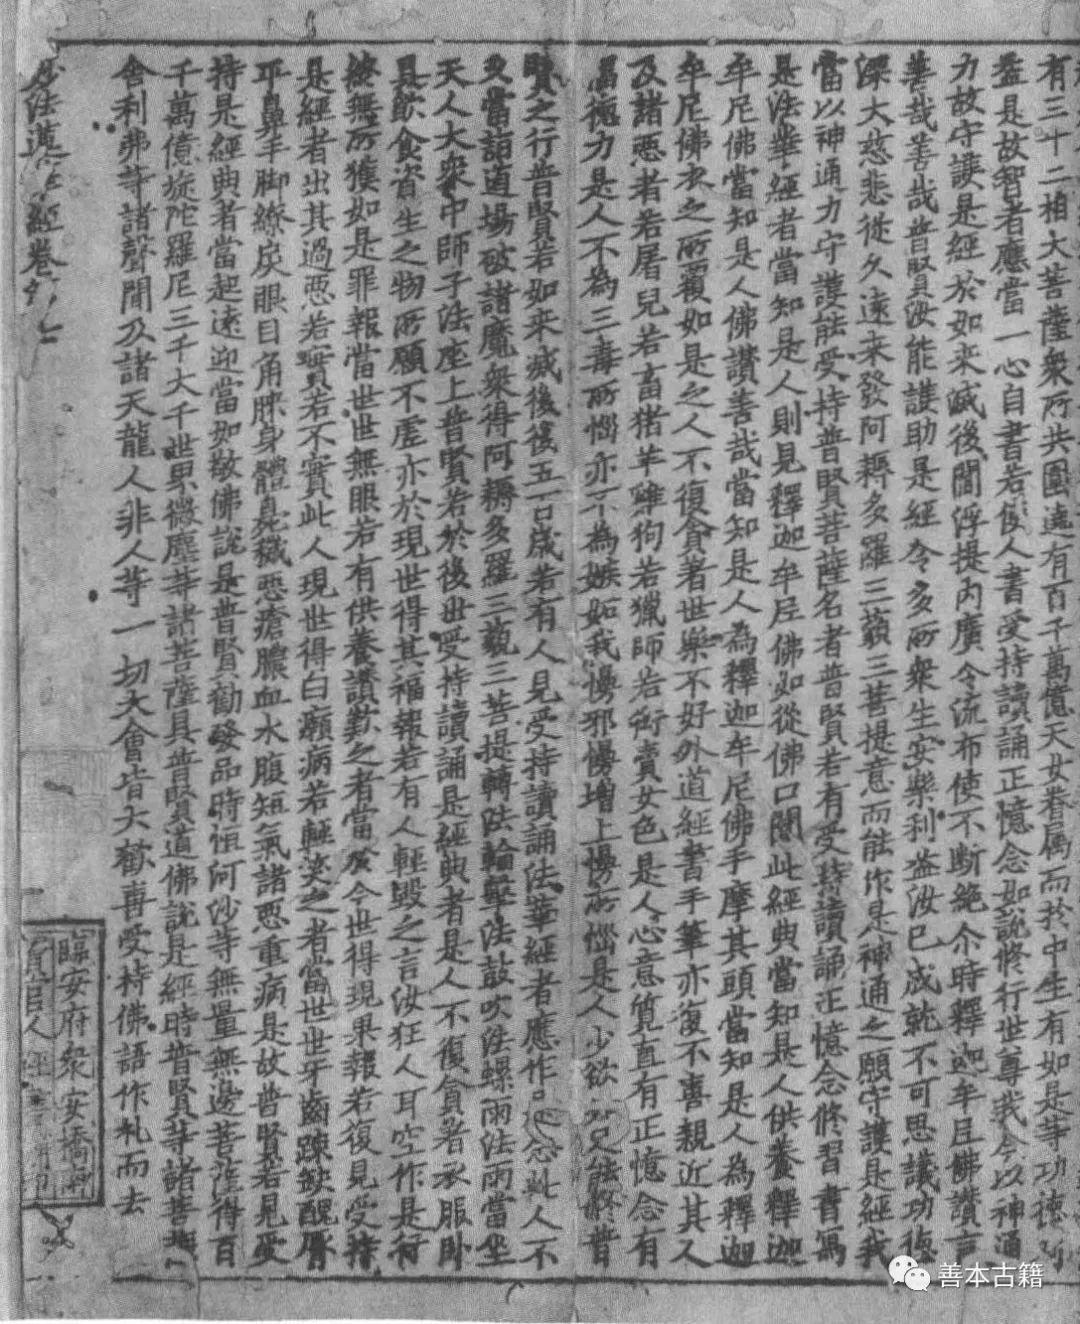 有三十二相大菩薩衆所共圍遶有百千萬億天女眷属而於中生有如是等功德
益是故智者應當一心自書若使人書受持讀誦正憶念如說修行世尊我今以神通
力故守護是經於如來滅後閻浮提內廣令流布使不斷絶尒時釋迦牟尼佛讃言
善哉善哉普賢汝能護助是經令多所衆生安樂利益汝已成就不可思議功德
深大慈悲從久遠來發阿耨多羅三藐三菩提意而能作是神通之願守護是經我
當以神通力守護能受持普賢菩薩名者普賢若有受持讀誦正憶念修習書寫
是法華經者當知是人則見釋迦牟尼佛如從佛口聞此經典當知是人供養釋迦
牟尼佛當知是人佛讃善哉當知是人為釋迦牟尼佛手摩其頭當知是人為釋迦
牟尼佛衣之所覆如是之人不復貪著世樂不好外道經書手筆亦復不喜親近其人
及諸惡者若屠兒若畜猪羊雞狗若獵師若衒賣女色是人心意質直有正憶念有
福德力是人不為三毒所惱亦不為嫉妬我慢邪慢增上慢所惱是人少欲知足能修普
賢之行普賢若如來滅後後五百歲若有人見受持讀誦法華經者應作是念此人不
久當詣道場破諸魔衆得阿耨多羅三藐三菩提轉法輪擊法鼓吹法螺雨法雨當坐
天人大衆中師子法座上普賢若於後世受持讀誦是經典者是人不復貪著衣服卧
具飲食資生之物所願不虛亦於現世得其福報若有人輕毀之言汝狂人耳空作是行
終無所獲如是罪報當世世無眼若有供養讃歎之者當於今世得現果報若復見受持
是經者出其過惡若實若不實此人現世得白癩病若輕笑之者當世世牙齒踈缺醜脣
平鼻手脚繚戾眼目角睞身體臭穢惡瘡膿血水腹短氣諸惡重病是故普賢若見受
持是經典者當起遠迎當如敬佛說是普賢勸發品時恒河沙等無量無邊菩薩得百
千萬億旋陀羅尼三千大千世界微塵等諸菩薩具普賢道佛說是經時普賢等諸菩薩
舍利弗等諸聲聞及諸天龍人非人等一切大會皆大歡喜受持佛語作礼而去
妙法蓮華經卷第七
臨安府衆安橋南
賈官人經書鋪印
善本古籍